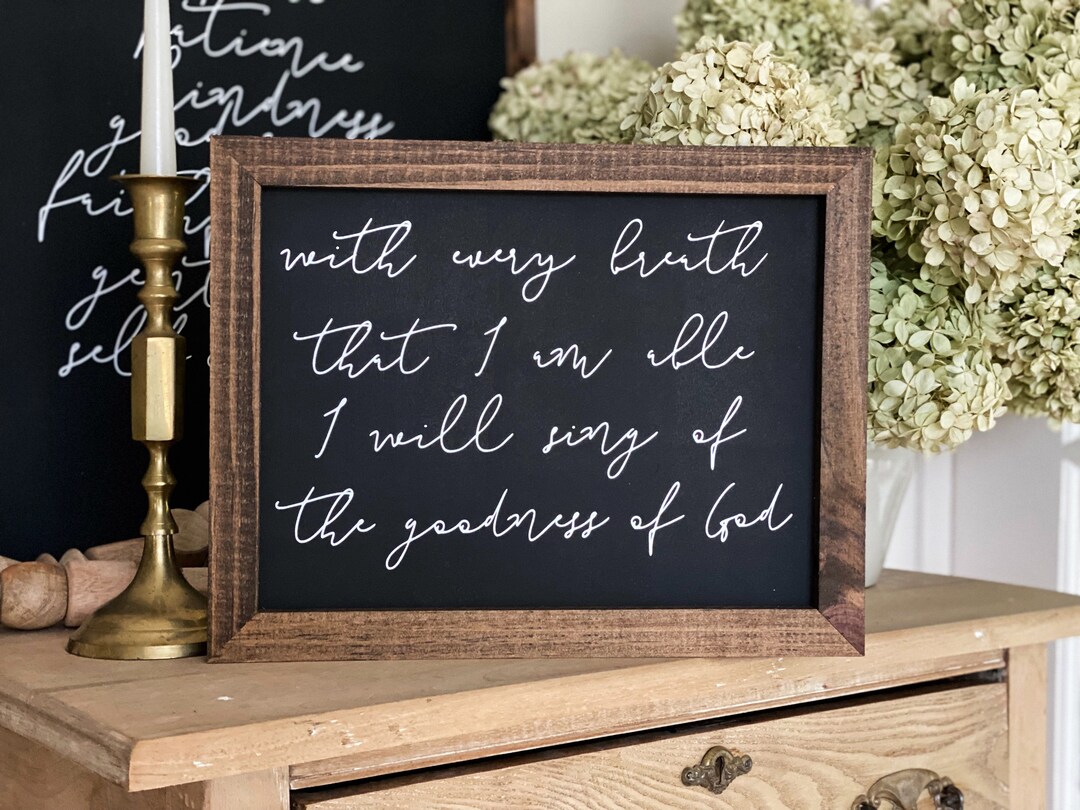 patience
kindness
with every breath
that I am able
I will sing of
the goodness of God